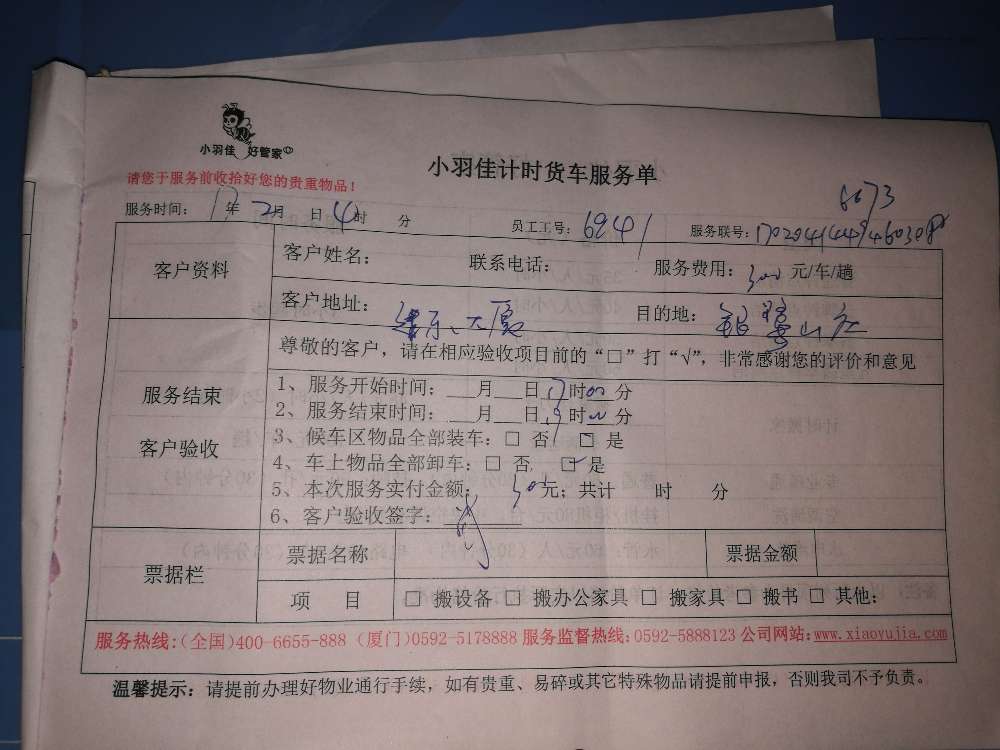 小羽佳 好管家
小羽佳计时货车服务单
请您于服务前收拾好您的贵重物品!
6673
服务时间: 17年 2月 日 4时 分 员工工号: 6941 服务联号:
客户资料
客户姓名: 联系电话: 服务费用: 300 元/车/趟
客户地址: 大厦 目的地:
服务结束
客户验收
尊敬的客户,请在相应验收项目前的“□”打“√”,非常感谢您的评价和意见
1、服务开始时间: ___月___日 时 分
2、服务结束时间: ___月___日 时 分
3、候车区物品全部装车:□ 否 □ 是
4、车上物品全部卸车:□ 否 ☑ 是
5、本次服务实付金额: 300元; 共计 时 分
6、客户验收签字:
票据栏
票据名称 票据金额
项 目 □ 搬设备 □ 搬办公家具 □ 搬家具 □ 搬书 □ 其他:
服务热线:(全国)400-6655-888 (厦门)0592-5178888 服务监督热线:0592-5888123 公司网站:www.xiaoyujia.com
温馨提示:请提前办理好物业通行手续,如有贵重、易碎或其它特殊物品请提前申报,否则我司不予负责。